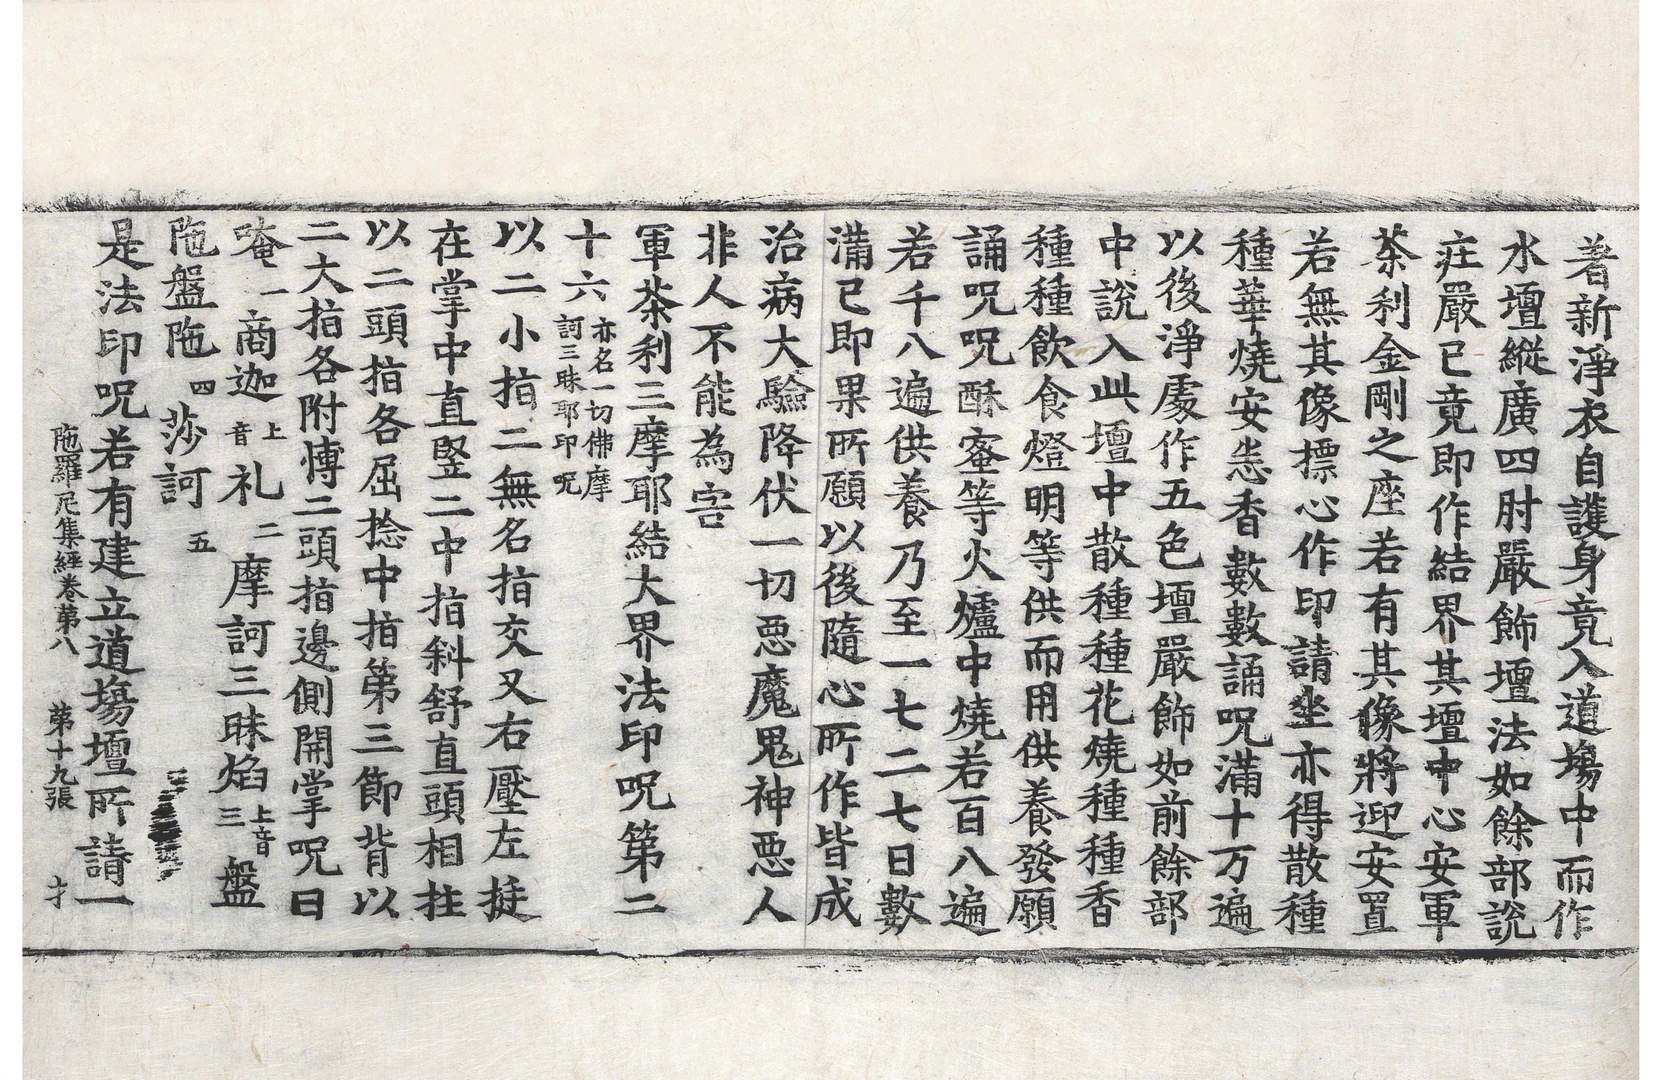 著新淨衣自護身竟入道場中而作
水壇縱廣四肘嚴飾壇法如餘部說
庄嚴已竟即作結界其壇中心安軍
茶利金剛之座若有其像將迎安置
若無其像摽心作印請坐亦得散種
種華燒安悉香數數誦呪滿十万遍
以後淨處作五色壇嚴飾如前餘部
中說入此壇中散種種花燒種種香
種種飲食燈明等供而用供養發願
誦呪呪酥蜜等火爐中燒若百八遍
若千八遍供養乃至一七二七日數
滿已即果所願以後隨心所作皆成
治病大驗降伏一切惡魔鬼神惡人
非人不能為害
軍茶利三摩耶結大界法印呪第二
十六亦名一切佛摩訶三昧耶印呪
以二小指二無名指交叉右壓左挺
在掌中直竪二中指斜舒直頭相拄
以二頭指各屈捻中指第三節背以
二大指各附慱二頭指邊側開掌呪曰
唵一商迦上音礼二摩訶三昧焰上音三盤
陁盤陁四莎訶五
是法印呪若有建立道場壇所請一
陁羅尼集經卷第八 第十九張 才